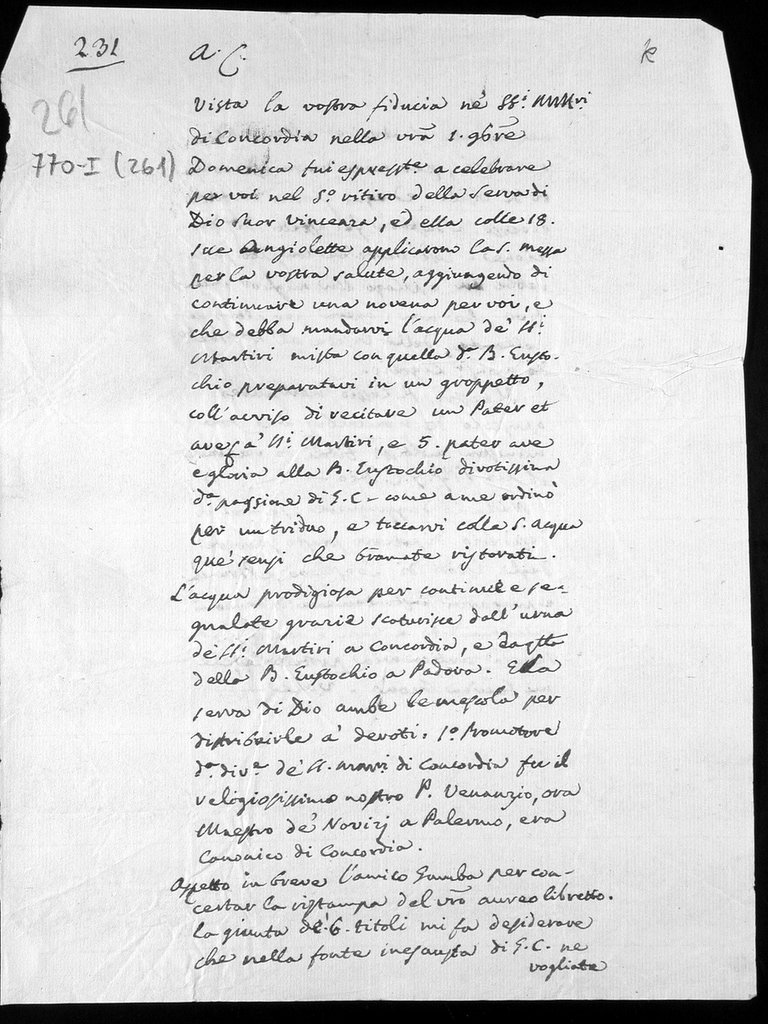 231
A. C.
k
261
770-I (261)
Vista la vostra fiducia ne' SS.i Martiri
di Concordia nella vrã 1. 9brẽ
Domenica fui espresste a celebrare
per voi nel So. ritiro della Serva di
Dio Suor Vincenza, ed ella colle 18.
sue Angiolette applicarono la S. messa
per la vostra salute, aggiungendo di
continuare una novena per voi, e
che debba mandarvi l'acqua de' SS.i
Martiri mista con quella da. B. Eusto-
chio preparatavi in un groppetto,
coll'avviso di recitare un Pater et
ave a' SS.i Martiri, e 5. pater ave
e gloria alla B. Eustochio divotissima
da. passione di G. C. - come a me ordinò
per un triduo, e toccarvi colla S. acqua
que' sensi che bramate ristorati.
L'acqua prodigiosa per continue e se-
gnalate grazie scaturisce dall'urna
de' SS.i Martiri a Concordia, e
della B. Eustochio a Padova. Ella
serva di Dio ambe le mescola per
distribuirle a' devoti. 1o. Promotore
da. diva. de' SS. marri di Concordia fu il
religiosissimo nostro P. Venanzio, ora
Maestro de' Novizj a Palermo, era
Canonico di Concordia.
Aspetto in breve l'amico Gamba per con-
certar la ristampa del vrõ aureo libretto.
la giunta de' 6. titoli mi fa desiderare
che nella fonte inesausta di G. C. ne
vogliate